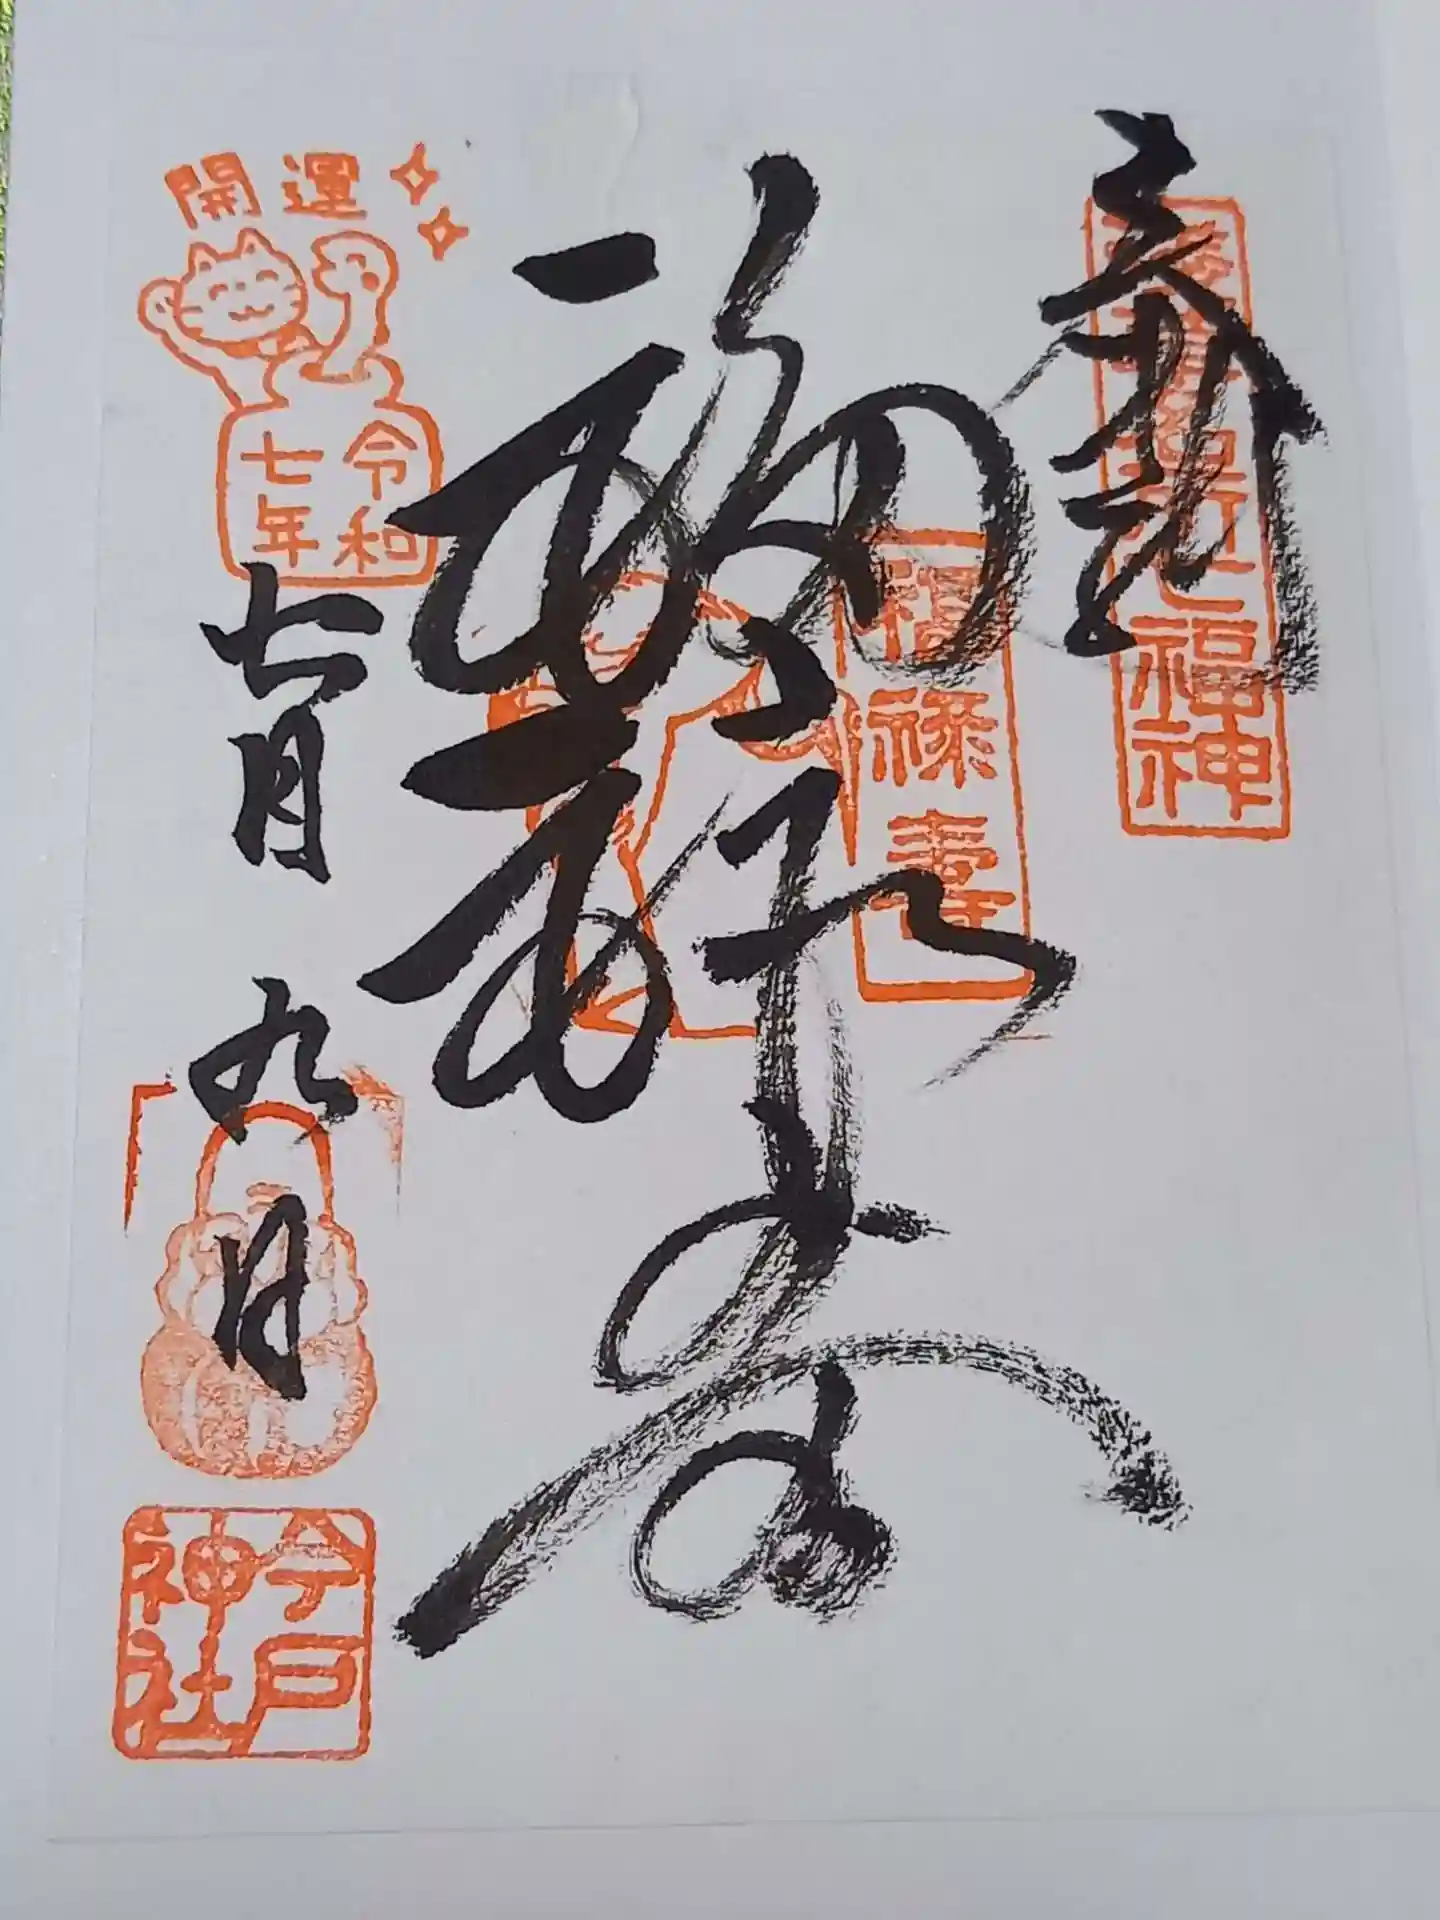 奉拝
浅草名所七福神
福禄寿
福禄寿
開運
令和
七年
七月
九日
今戸
神社